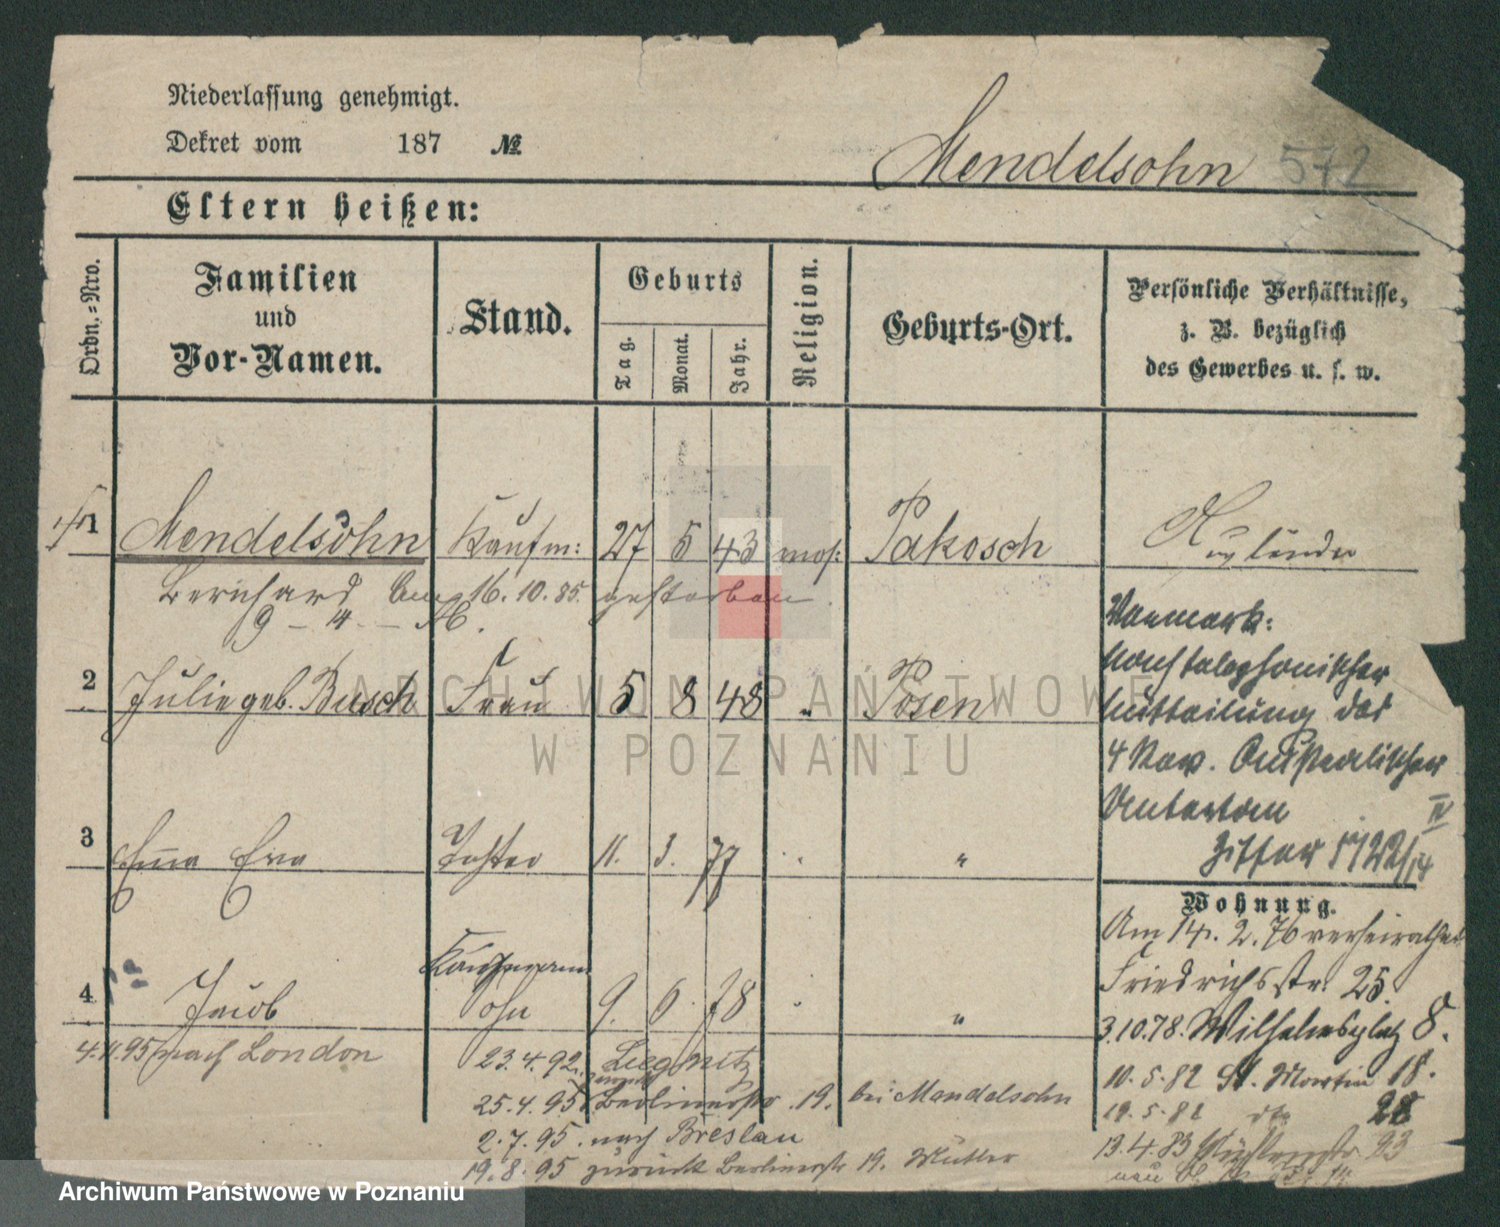 Niederlassung genehmigt.
Dekret vom 187 №
Mendelsohn 572
Eltern heißen:
Ordn.-Nro.
Familien
und
Vor-Namen.
Stand.
Geburts
Tag.
Monat.
Jahr.
Religion.
Geburts-Ort.
Persönliche Verhältnisse,
z. B. bezüglich
des Gewerbes u. s. w.
1 Mendelsohn Kaufm: 27 5 43 mos: Pakosch
Bernhard am 16.10.85. gestorben
2 Julie geb. Busch Frau 5 8 48 " Posen
3 Eva Tochter 11. 3. 77 " "
Kaufmann
4 Jacob Sohn 9. 6 78 " "
4.11.95 nach London
23.4.92. Liegnitz
zurück
25.4.95 Berlinerstr. 19. bei Mendelsohn
2.7.95. nach Breslau
19.8.95 zurück Berlinerstr 19. Mutter
Vermerk:
4
IV
Wohnung.
Am 14. 2. 76 verheirathet
Friedrichsstr. 25.
3.10.78. Wilhelmsplatz 8.
10.5.82 St. Martin 18.
19.5.82 dto 28
13.4.83 23
ARCHIWUM PAŃSTWOWE
W POZNANIU
Archiwum Państwowe w Poznaniu